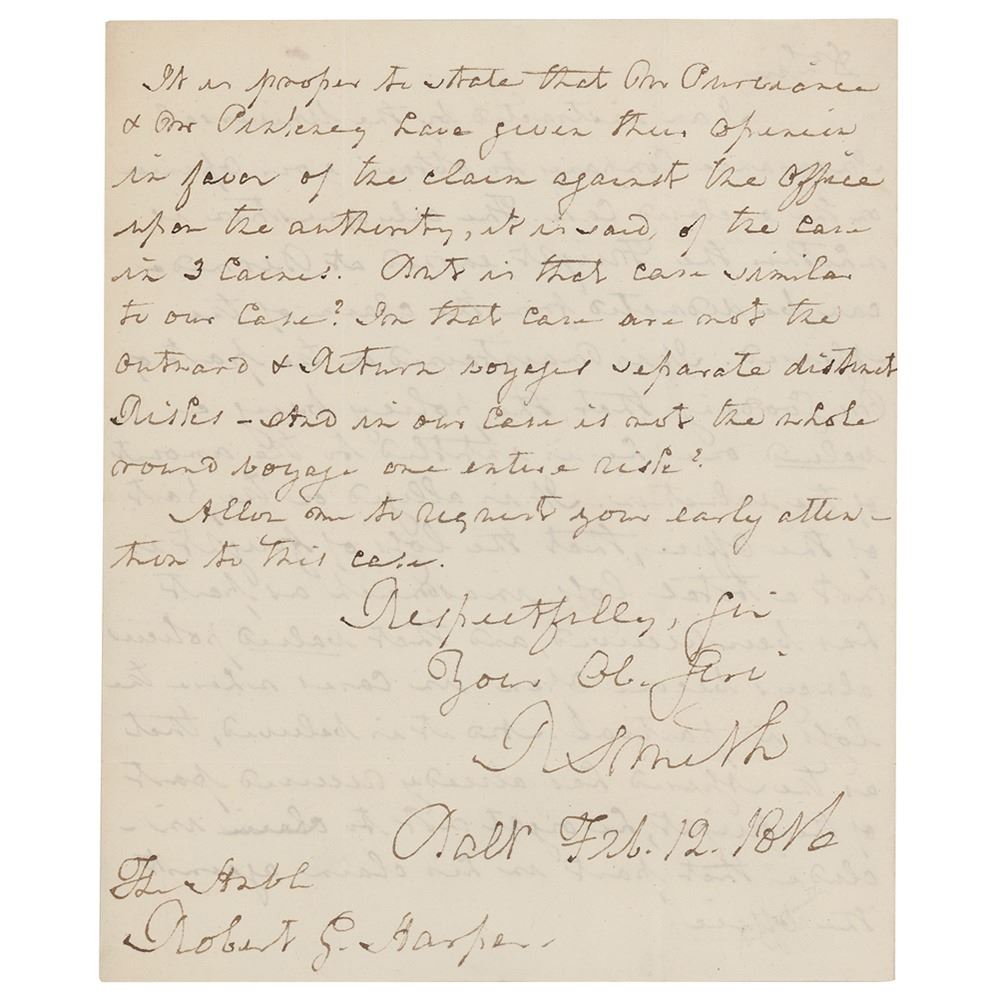 It is proper to state that Mr Purviance
& Mr Pinkney have given their opinion
in favor of the claim against the Office
upon the authority, it is said, of the case
in 3 Caines. But is that case similar
to our Case? In that Case are not the
outward & Return voyages separate distinct
Risks – And in our Case is not the whole
round voyage one entire risk?
Allow me to request your early atten-
tion to this case.
Respectfully, Sir
Your Ob. Ser
R Smith
Balt Feb. 12. 1816
The Honbl
Robert G. Harper.